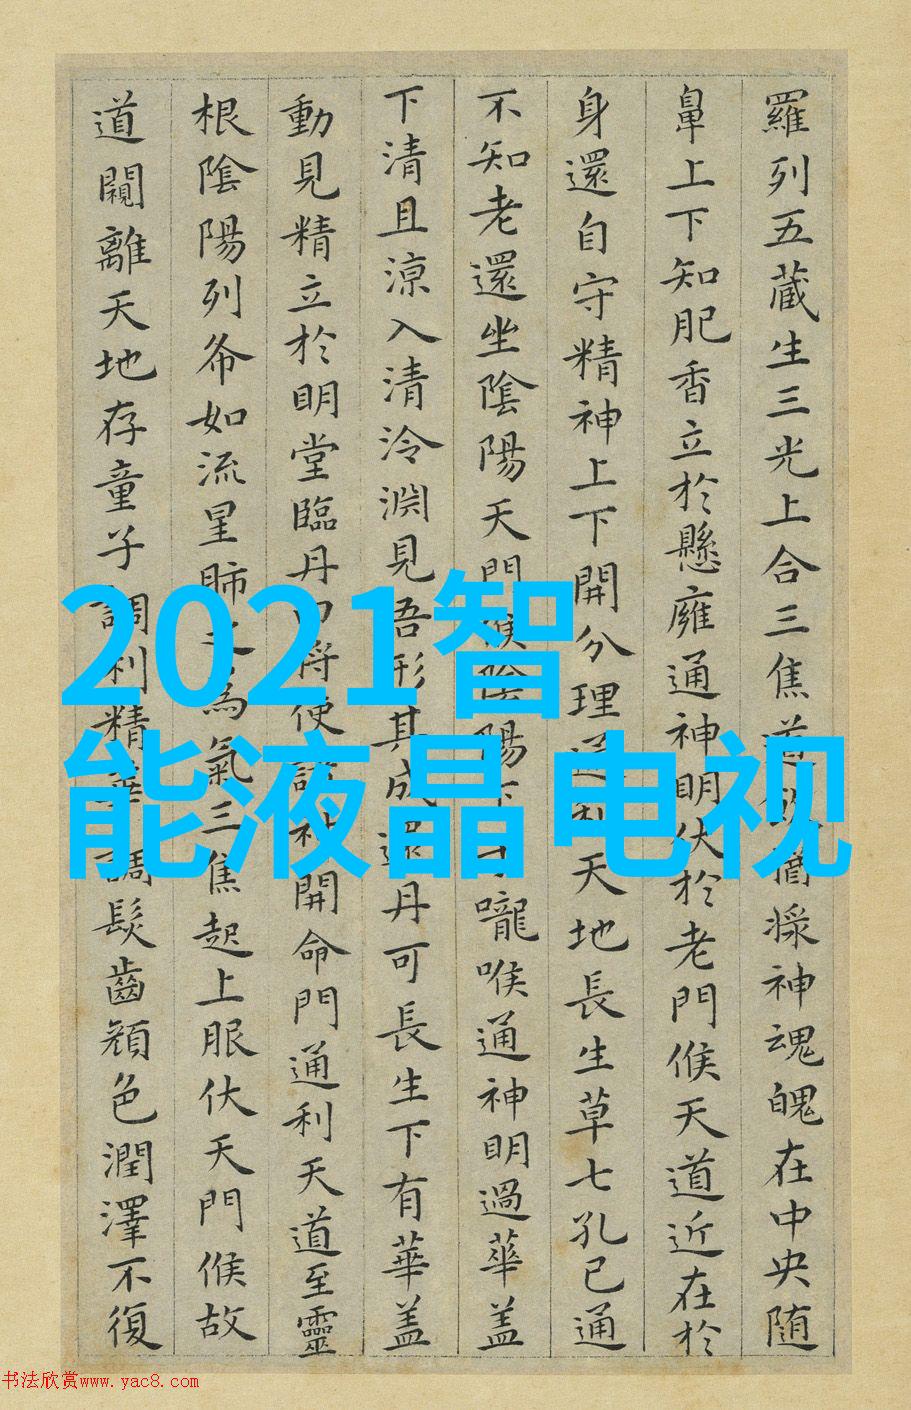 羅列五藏生三光上合三焦道飲醬漿神魂魄在中央随
鼻上下知肥香立於懸雍通神明伏於老門候天道近在於
身還自守精神上下開分理通利天地長生草七孔已通
不知老還坐陰陽天門候陰陽下于嚨喉通神明過華盖
下清且涼入清泠淵見吾形其成還丹可長生下有華盖
動見精立於明堂臨丹田将使諸神開命門通利天道至靈
根陰陽列布如流星肺之為氣三焦起上服伏天門候故
道闚離天地存童子調利精華調髮齒顔色潤澤不復
2021智
能液晶电视
书法欣赏www.yac8.com